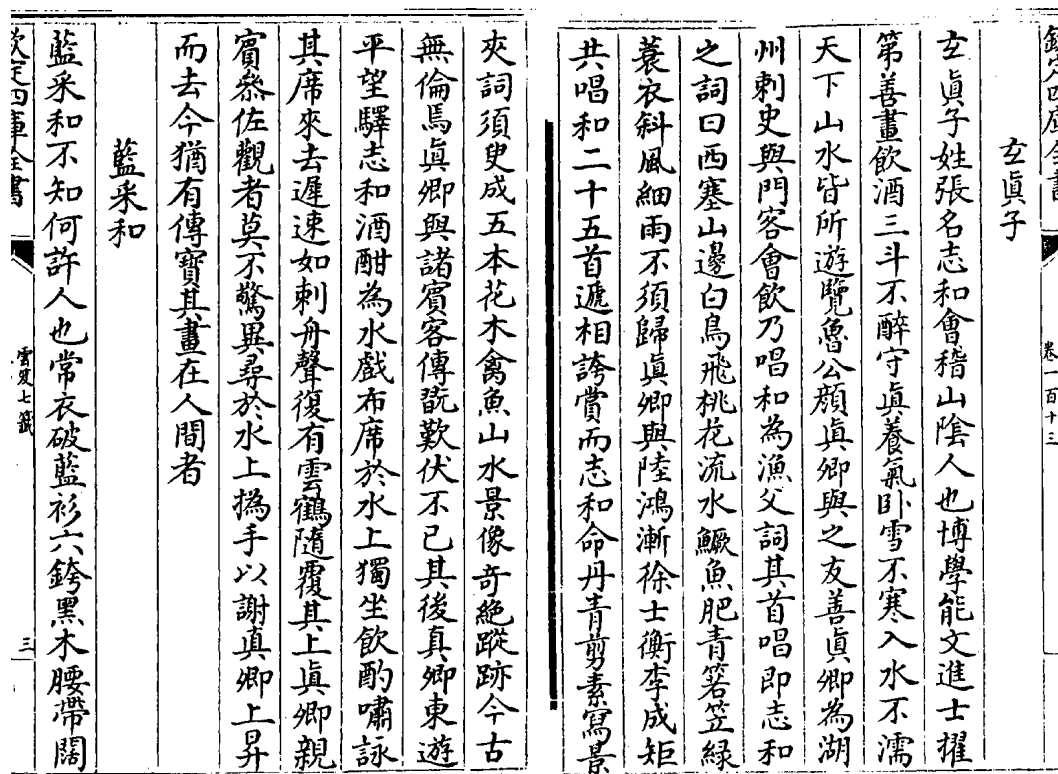 欽定四庫全書
卷一百十三
玄眞子
玄眞子姓張名志和會稽山陰人也博學能文進士擢
第善畫飲酒三斗不醉守眞養氣卧雪不寒入水不濡
天下山水皆所遊覽魯公顔眞卿與之友善眞卿為湖
州刺史與門客會飲乃唱和為漁父詞其首唱即志和
之詞曰西塞山邊白鳥飛桃花流水鱖魚肥青箬笠緑
蓑衣斜風細雨不須歸眞卿與陸鴻漸徐士衡李成矩
共唱和二十五首遞相誇賞而志和命丹青剪素寫景
夾詞須臾成五本花木禽魚山水景像奇絶蹤跡今古
無倫焉眞卿與諸賓客傳翫歎伏不已其後真卿東遊
平望驛志和酒酣為水戲布席於水上獨坐飲酌嘯詠
其席來去遲速如刺舟聲復有雲鶴隨覆其上眞卿親
賓叅佐觀者莫不驚異尋於水上撝手以謝真卿上昇
而去今猶有傳寶其畫在人間者
藍采和
藍采和不知何許人也常衣破藍衫六銙黒木腰帶闊
欽定四庫全書
雲笈七籤
三